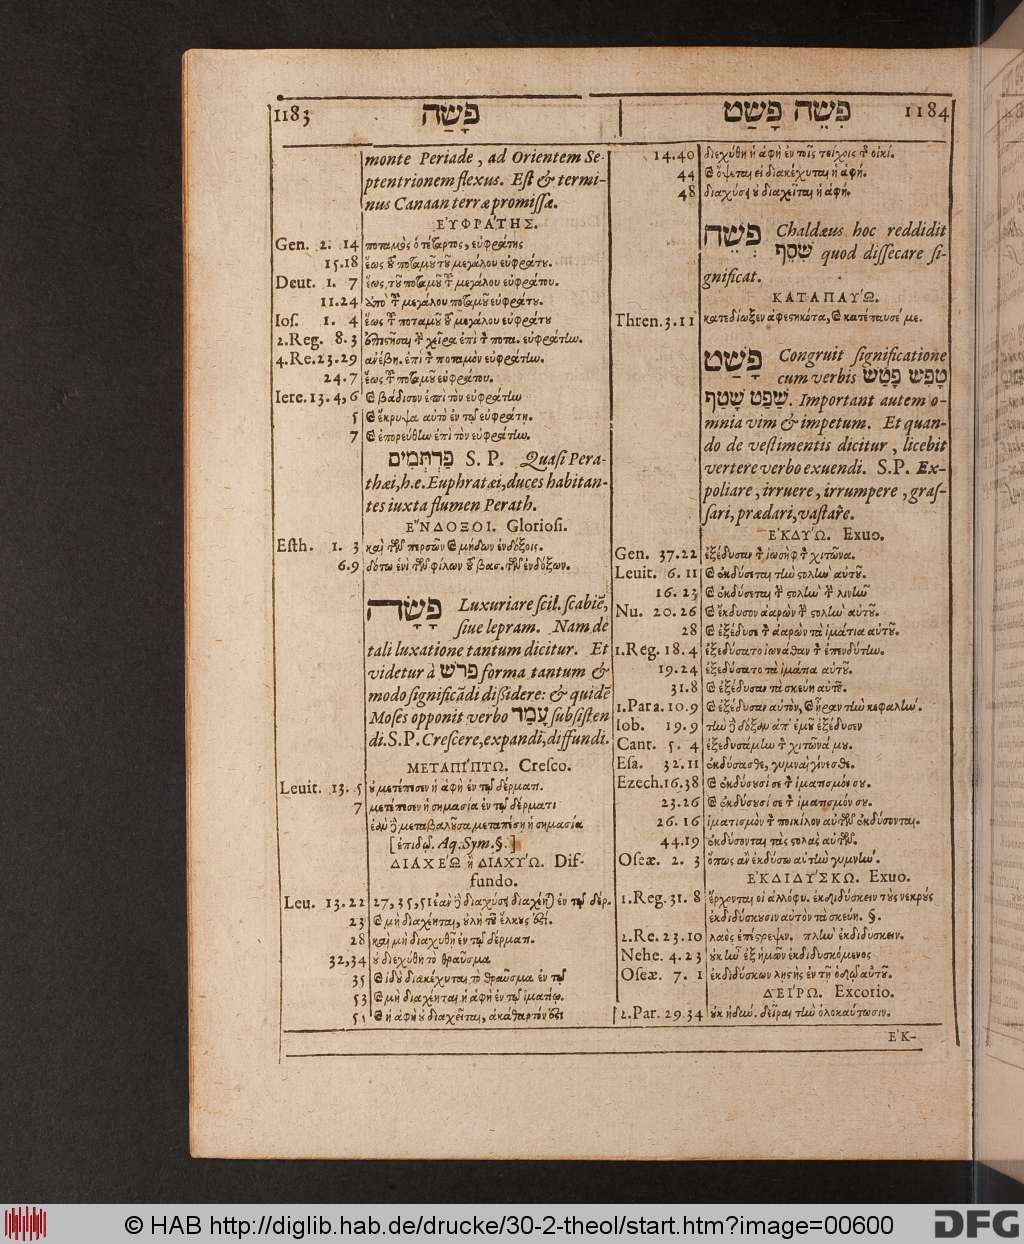 1183 פָּשָׂה
monte Periade, ad Orientem Se-
ptentrionem flexus. Est & termi-
nus Canaan terræ promissæ.
ΕΥ̓ΦΡΆΤΗΣ.
Gen. 2. 14 ποταμὸς ὁ τέταρτος, εὐφράτης
15.18 ἕως τοῦ ποταμοῦ τοῦ μεγάλου εὐφράτου.
Deut. 1. 7 ἕως τοῦ ποταμοῦ τοῦ μεγάλου εὐφράτου.
11.24 ἀπὸ τοῦ μεγάλου ποταμοῦ εὐφράτου.
Ios. 1. 4 ἕως τοῦ ποταμοῦ τοῦ μεγάλου εὐφράτου
2.Reg. 8.3 ἐπιστῆσαι τὴν χεῖρα ἐπὶ τὸν ποτα. εὐφράτην.
4.Re.23.29 ἀνέβη. ἐπὶ τὸν ποταμὸν εὐφράτην.
24.7 ἕως τοῦ ποταμοῦ εὐφράτου.
Iere.13.4,6 καὶ βάδισον ἐπὶ τὸν εὐφράτην
5 καὶ ἔκρυψα αὐτὸ ἐν τῷ εὐφράτῃ.
7 καὶ ἐπορεύθην ἐπὶ τὸν εὐφράτην.
פַּרְתְּמִים S. P. Quasi Pera-
thæi, h.e. Euphratæi, duces habitan-
tes iuxta flumen Perath.
ΕΝΔΟΞΟΙ. Gloriosi.
Esth. 1. 3 καὶ τῶν περσῶν καὶ μήδων ἐνδόξοις.
6.9 δότω ἑνὶ τῶν φίλων τοῦ βασ. τῶν ἐνδόξων.
פָּשָׂה Luxuriare scil. scabiē,
siue lepram. Nam de
tali luxatione tantum dicitur. Et
videtur à פרש forma tantum &
modo significādi dißidere: & quidē
Moses opponit verbo עָמַד subsisten
di. S.P. Crescere, expandi, diffundi.
ΜΕΤΑΠΊΠΤΩ. Cresco.
Leuit. 13. 5 οὐ μετέπεσεν ἡ ἁφὴ ἐν τῷ δέρματι.
7 μετέπεσεν ἡ σημασία ἐν τῷ δέρματι
ἐὰν δὲ μεταβαλοῦσα μεταπέσῃ ἡ σημασία
[ἐπιδῷ. Aq. Sym. §.]
ΔΙΑΧΈΩ ἢ ΔΙΑΧΎΩ. Dif-
fundo.
Leu. 13.22 27,35,51 ἐὰν δὲ διαχύσει διαχέηται ἐν τῷ δέρ.
23 καὶ μὴ διαχέηται, οὐλὴ τοῦ ἕλκους ἐστί.
28 καὶ μὴ διαχυθῇ ἐν τῷ δέρματι.
32,34 οὐ διεχύθη τὸ θραῦσμα
35 καὶ ἰδοὺ διακέχυται τὸ θραῦσμα ἐν τῷ
53 καὶ μὴ διαχέηται ἡ ἁφὴ ἐν τῷ ἱματίῳ.
51 καὶ ἡ ἁφὴ οὐ διαχεῖται, ἀκάθαρτόν ἐστι
פִּשֵּׁחַ פָּשַׁט 1184
14.40 διεχύθη ἡ ἁφὴ ἐν τοῖς τοίχοις τῆς οἰκί.
44 καὶ ὄψεται εἰ διακέχυται ἡ ἁφή.
48 διαχύσει οὐ διαχεῖται ἡ ἁφή.
פִּשֵּׁחַ Chaldæus hoc reddidit
שִׁסֵּף quod dissecare si-
gnificat.
ΚΑΤΑΠΑΎΩ.
Thren.3.11 κατεδίωξεν ἀφεστηκότα, καὶ κατέπαυσέ με.
פָּשַׁט Congruit significatione
cum verbis פָּטַשׁ טָפַשׁ
שָׁפַט שָׁטַף. Important autem o-
mnia vim & impetum. Et quan-
do de vestimentis dicitur, licebit
vertere verbo exuendi. S.P. Ex-
poliare, irruere, irrumpere, gras-
sari, prædari, vastare.
ΕΚΔΎΩ. Exuo.
Gen. 37.22 ἐξέδυσαν τὸν ἰωσὴφ τὸν χιτῶνα.
Leuit. 6.11 καὶ ἐκδύσεται τὴν στολὴν αὐτοῦ.
16.23 καὶ ἐκδύσεται τὴν στολὴν τὴν λινῆν
Nu. 20.26 καὶ ἔκδυσον ἀαρὼν τὴν στολὴν αὐτοῦ.
28 καὶ ἐξέδυσε τὸν ἀαρὼν τὰ ἱμάτια αὐτοῦ.
1.Reg. 18.4 ἐξεδύσατο ἰωνάθαν τὸν ἐπενδύτην.
19.24 ἐξεδύσατο τὰ ἱμάτια αὐτοῦ.
31.8 καὶ ἐξέδυσαν τὰ σκεύη αὐτοῦ.
1.Para. 10.9 καὶ ἐξέδυσαν αὐτὸν, καὶ ἦραν τὴν κεφαλήν.
Iob. 19.9 τὴν δὲ δόξαν ἀπ' ἐμοῦ ἐξέδυσεν
Cant. 5. 4 ἐξεδυσάμην τὸν χιτῶνά μου.
Esa. 32.11 ἐκδύσασθε, γυμναὶ γίνεσθε.
Ezech.16.38 καὶ ἐκδύσουσί σε τὸν ἱματισμόν σου.
23.26 καὶ ἐκδύσουσί σε τὸν ἱματισμόν σου.
26.16 ἱματισμὸν τὸν ποικίλον αὐτῶν ἐκδύσονται.
44.19 ἐκδύσονται τὰς στολὰς αὐτῶν.
Oseæ. 2. 3 ὅπως ἂν ἐκδύσω αὐτὴν γυμνήν.
ΕΚΔΙΔΎΣΚΩ. Exuo.
1.Reg.31. 8 ἔρχονται οἱ ἀλλόφυ. ἐκδιδύσκειν τοὺς νεκροὺς
ἐκδιδύσκουσιν αὐτὸν τὰ σκεύη. §.
2.Re. 23.10 λαὸς ἐπέστρεψεν. πλὴν ἐκδιδύσκειν.
Nehe. 4.23 οὐκ ἦν ἐξ ἡμῶν ἐκδιδυσκόμενος
Oseæ. 7. 1 ἐκδιδύσκων λῃστὴς ἐν τῇ ὁδῷ αὐτοῦ.
ΔΕΊΡΩ. Excorio.
2.Par. 29.34 οὐκ ἠδύναντο δεῖραι τὴν ὁλοκαύτωσιν.
ΕΚ-
© HAB http://diglib.hab.de/drucke/30-2-theol/start.htm?image=00600
DFG